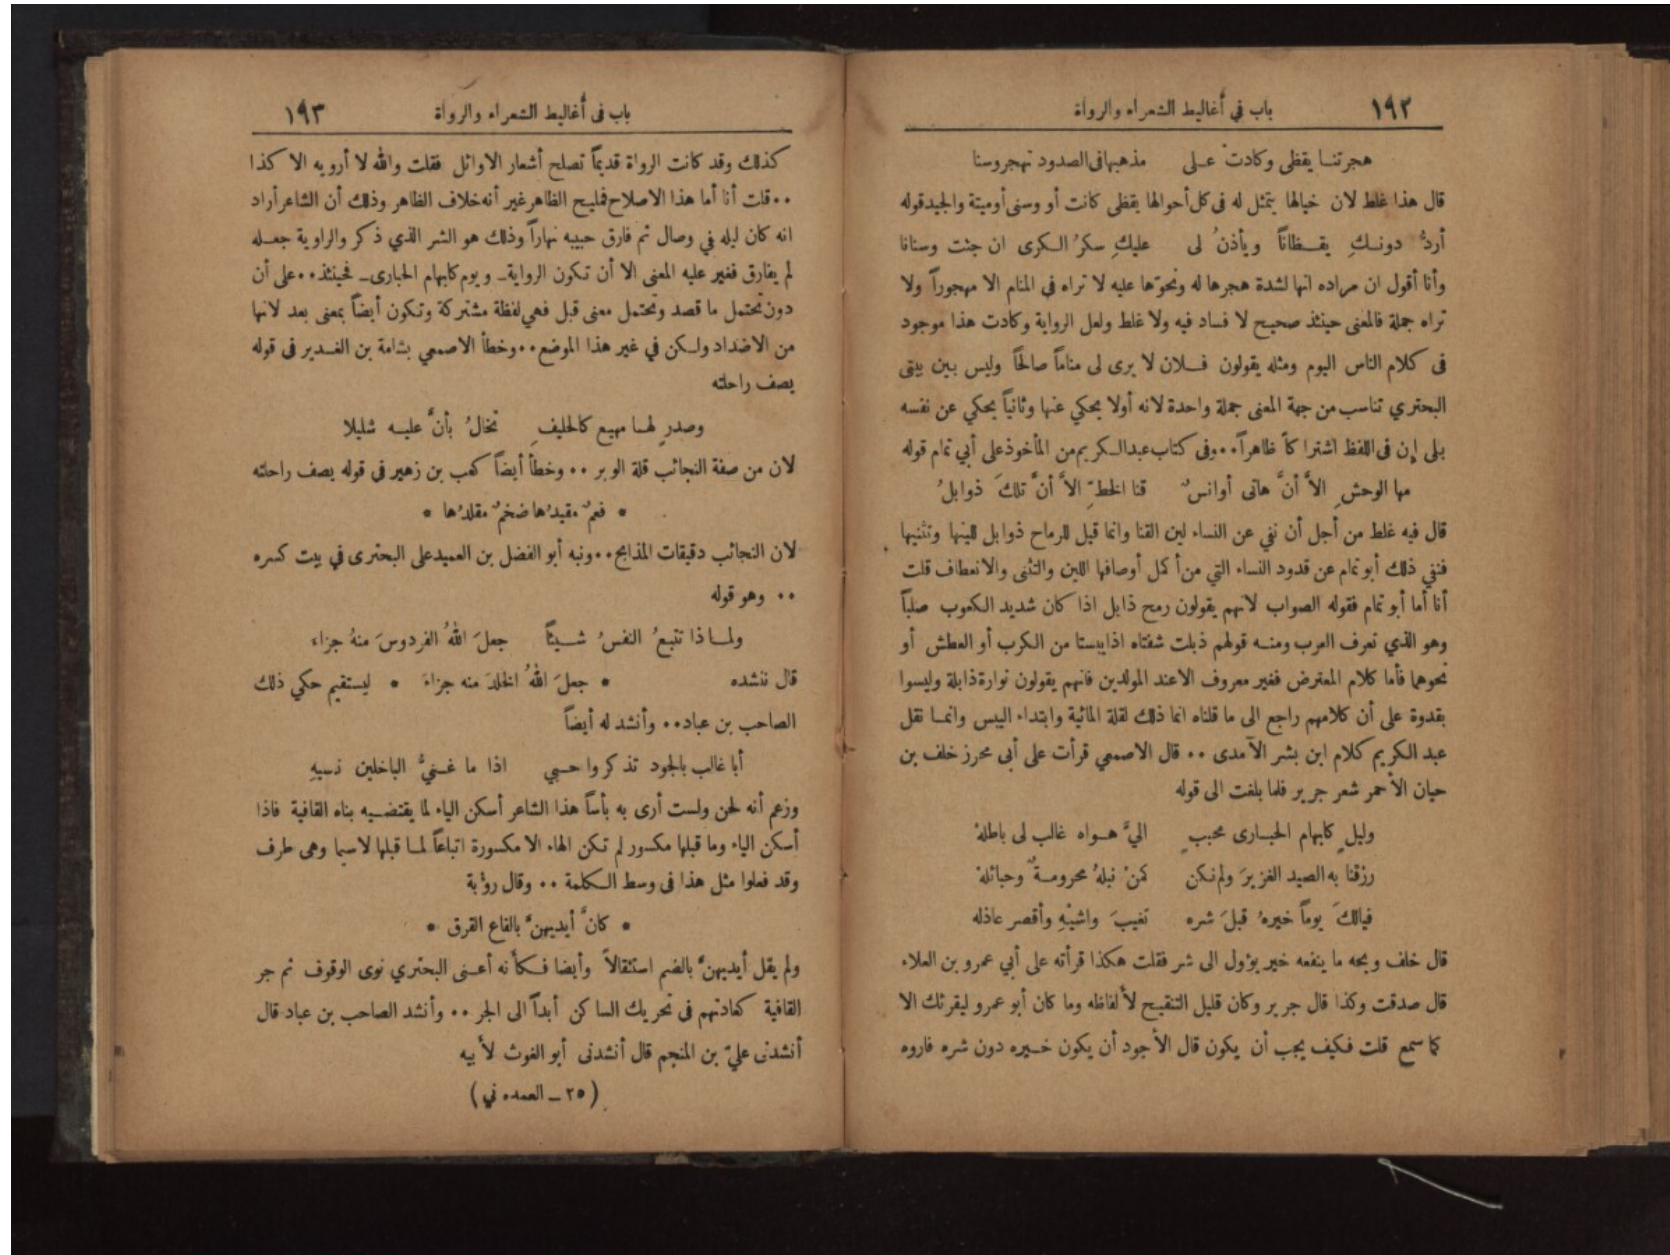 ١٩٢ باب في أغاليط الشعراء والرواة
هجرتنا يقظى وكادت على مذهبها فى الصدود تهجر وسنا
قال هذا غلط لان خيالها يتمثل له فى كل أحوالها يقظى كانت أو وسنى أوميتة والجيد قوله
أردُّ دونكِ يقظاناً ويأذنُ لى عليكِ سكرُ الكرى ان جئت وسنانا
وأنا أقول ان مراده انها لشدة هجرها له ونحوّها عليه لا تراه في المنام الا مهجوراً ولا
تراه جملة فالمعنى حينئذ صحيح لا فساد فيه ولا غلط ولعل الرواية وكادت هذا موجود
فى كلام الناس اليوم ومثله يقولون فلان لا يرى لى مناماً صالحاً وليس بين بيتى
البحتري تناسب من جهة المعنى جملة واحدة لانه أولا يحكي عنها وثانياً يحكي عن نفسه
بلى إن فى اللفظ اشتراكاً ظاهراً ٠٠ وفى كتاب عبد الكريم من المأخوذ على أبي تمام قوله
مها الوحشِ الاَّ أنَّ هاتى أوانسٌ قنا الخطِّ الاَّ أنَّ تلكَ ذوابلُ
قال فيه غلط من أجل أن نفي عن النساء لين القنا وانما قيل للرماح ذوابل للينها وتثنيها
فنفي ذلك أبو تمام عن قدود النساء التي من أكمل أوصافها اللين والتثنى والانعطاف قلت
أنا أما أبو تمام فقوله الصواب لانهم يقولون رمح ذابل اذا كان شديد الكعوب صلباً
وهو الذي تعرف العرب ومنه قولهم ذبلت شفتاه اذا يبستا من الكرب أو العطش أو
نحوهما فأما كلام المعترض فغير معروف الاعند المولدين فانهم يقولون نوارة ذابلة وليسوا
بقدوة على أن كلامهم راجع الى ما قلناه انما ذلك لقلة المائية وابتداء اليبس وانما نقل
عبد الكريم كلام ابن بشر الآمدى ٠٠ قال الاصمعي قرأت على أبى محرز خلف بن
حيان الأحمر شعر جرير فلما بلغت الى قوله
وليلٍ كابهام الحبارى محببٍ اليَّ هواه غالب لى باطلهْ
رزقنا به الصيد الغزيرَ ولم نكن كمنْ نبلهُ محرومةٌ وحبائلهْ
فيالكَ يوماً خيرهُ قبلَ شره تغيبَ واشيْهِ وأقصر عاذله
قال خلف ويحه ما ينفعه خير يؤول الى شر فقلت هكذا قرأته على أبي عمرو بن العلاء
قال صدقت وكذا قال جرير وكان قليل التنقيح لألفاظه وما كان أبو عمرو ليقرئك الا
كما سمع قلت فكيف يجب أن يكون قال الأجود أن يكون خيره دون شره فاروه
باب فى أغاليط الشعراء والرواة ١٩٣
كذلك وقد كانت الرواة قديماً تصلح أشعار الاوائل فقلت والله لا أرويه الا كذا
٠٠ قلت أنا أما هذا الاصلاح فمليح الظاهر غير أنه خلاف الظاهر وذلك أن الشاعر أراد
انه كان ليله في وصال ثم فارق حبيبه نهاراً وذلك هو الشر الذي ذكر والراوية جعله
لم يفارق فغير عليه المعنى الا أن تكون الرواية ـ ويوم كابهام الحبارى ـ فحينئذ ٠٠ على أن
دون تحتمل ما قصد وتحتمل معنى قبل فهي لفظة مشتركة وتكون أيضاً بمعنى بعد لانها
من الاضداد ولكن في غير هذا الموضع ٠٠ وخطأ الاصمعي بشامة بن الغدير فى قوله
يصف راحلته
وصدرٍ لها مهيع كالخليفِ تخالُ بأنَّ عليه شليلا
لان من صفة النجائب قلة الوبر ٠٠ وخطأ أيضاً كعب بن زهير فى قوله يصف راحلته
* فعمٌ مقيدُها ضخمٌ مقلدُها *
لان النجائب دقيقات المذابح ٠٠ ونبه أبو الفضل بن العميد على البحترى في بيت كسره
٠٠ وهو قوله
ولماذا تتبعُ النفسُ شيئاً جعلَ اللهُ الفردوسَ منهُ جزاءَ
قال ننشده * جعلَ اللهُ الخلدَ منه جزاءَ * ليستقيم حكي ذلك
الصاحب بن عباد ٠٠ وأنشد له أيضاً
أبا غالب بالجود تذكر واجبي اذا ما غنيُّ الباخلين نسيهِ
وزعم أنه لحن ولست أرى به بأساً هذا الشاعر أسكن الياء لما يقتضيه بناء القافية فاذا
أسكن الياء وما قبلها مكسور لم تكن الهاء الا مكسورة اتباعاً لما قبلها لاسيما وهى طرف
وقد فعلوا مثل هذا فى وسط الكلمة ٠٠ وقال رؤبة
* كانَّ أيديهنَّ بالقاع القرق *
ولم يقل أيديهنَّ بالضم استثقالاً وأيضا فكأنه أعنى البحتري نوى الوقوف ثم جر
القافية كعادتهم فى تحريك الساكن أبداً الى الجر ٠٠ وأنشد الصاحب بن عباد قال
أنشدنى عليّ بن المنجم قال أنشدنى أبو الغوث لأبيه
( ٢٥ ـ العمده ني )